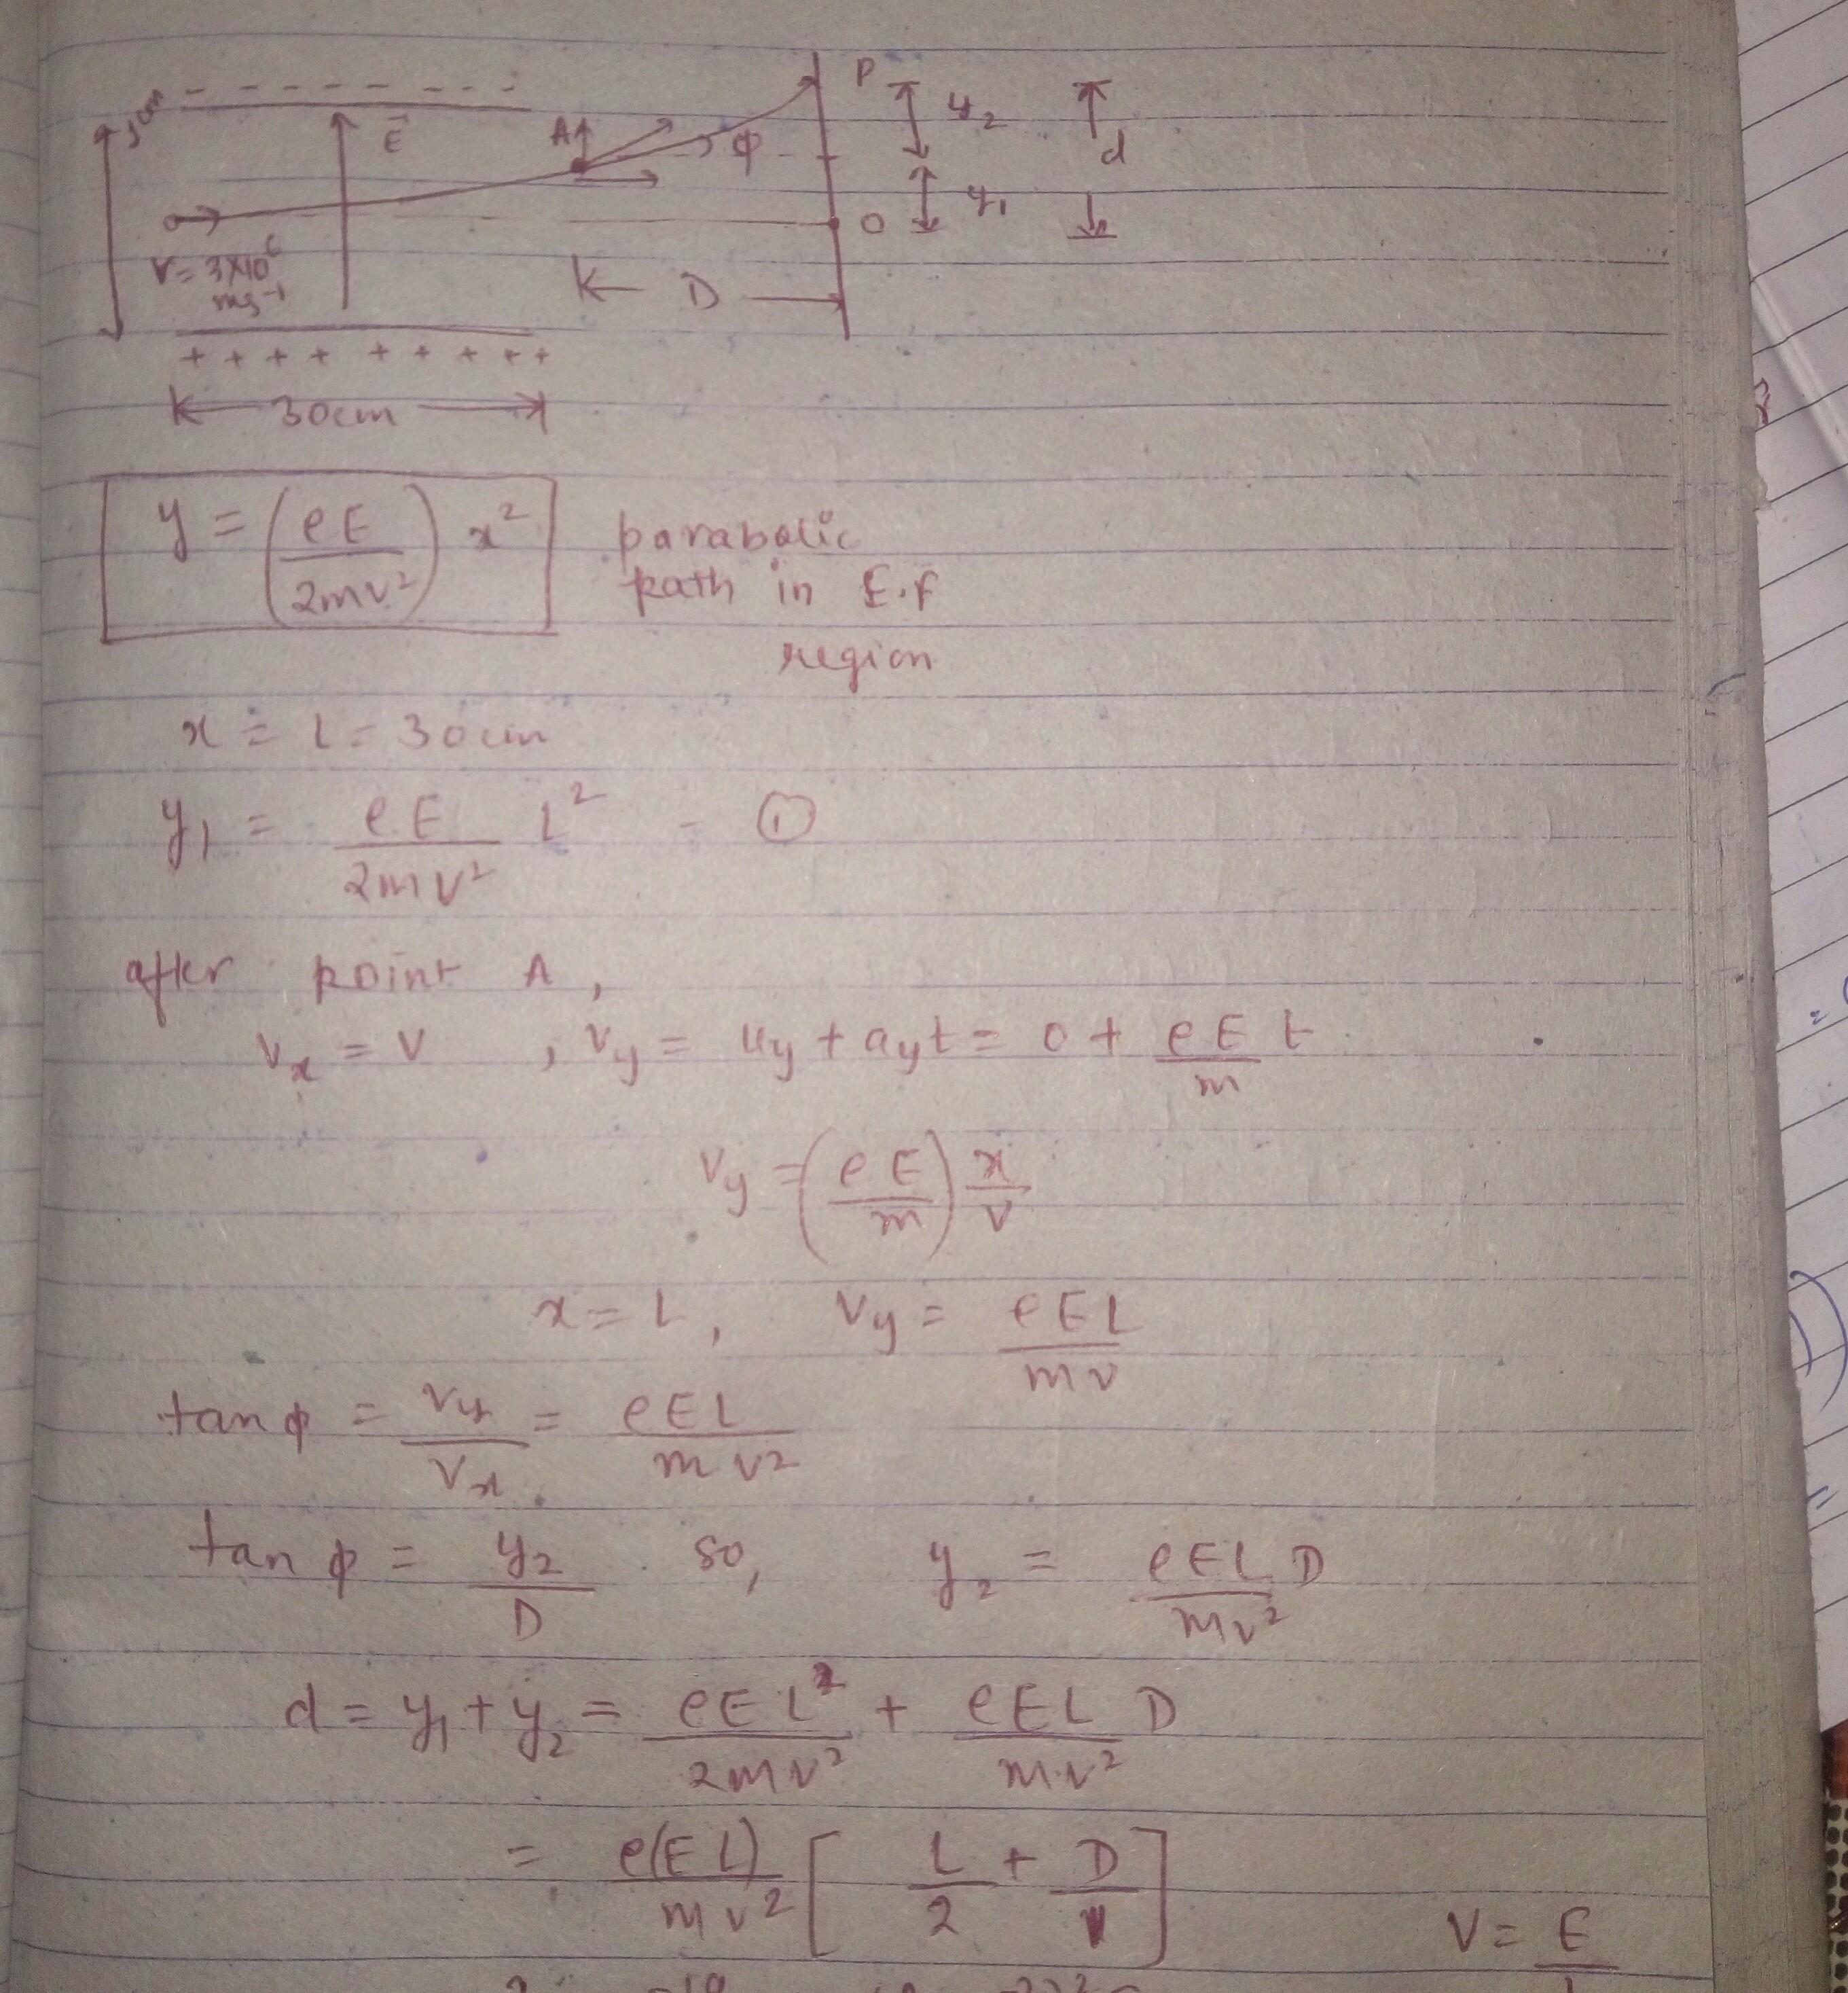 - - - - - - -
P
y₂
A
E⃗
φ
d
y₁
O
V = 3×10⁶
ms⁻¹
D
+ + + + + + + + +
30cm
y = (eE / 2mv²) x² parabolic
path in E.F
region
x = L = 30cm
y₁ = eE / 2mv² L² - ①
after point A,
vₓ = v , v_y = u_y + a_y t = 0 + eE/m t
v_y = (eE/m) x/v
x = L, v_y = eEL/mv
tan φ = v_y/vₓ = eEL/mv²
tan φ = y₂/D so, y₂ = eELD/mv²
d = y₁ + y₂ = eEL²/2mv² + eEL/mv² D
= e(EL)/mv² [ L/2 + D/1 ]
V = E